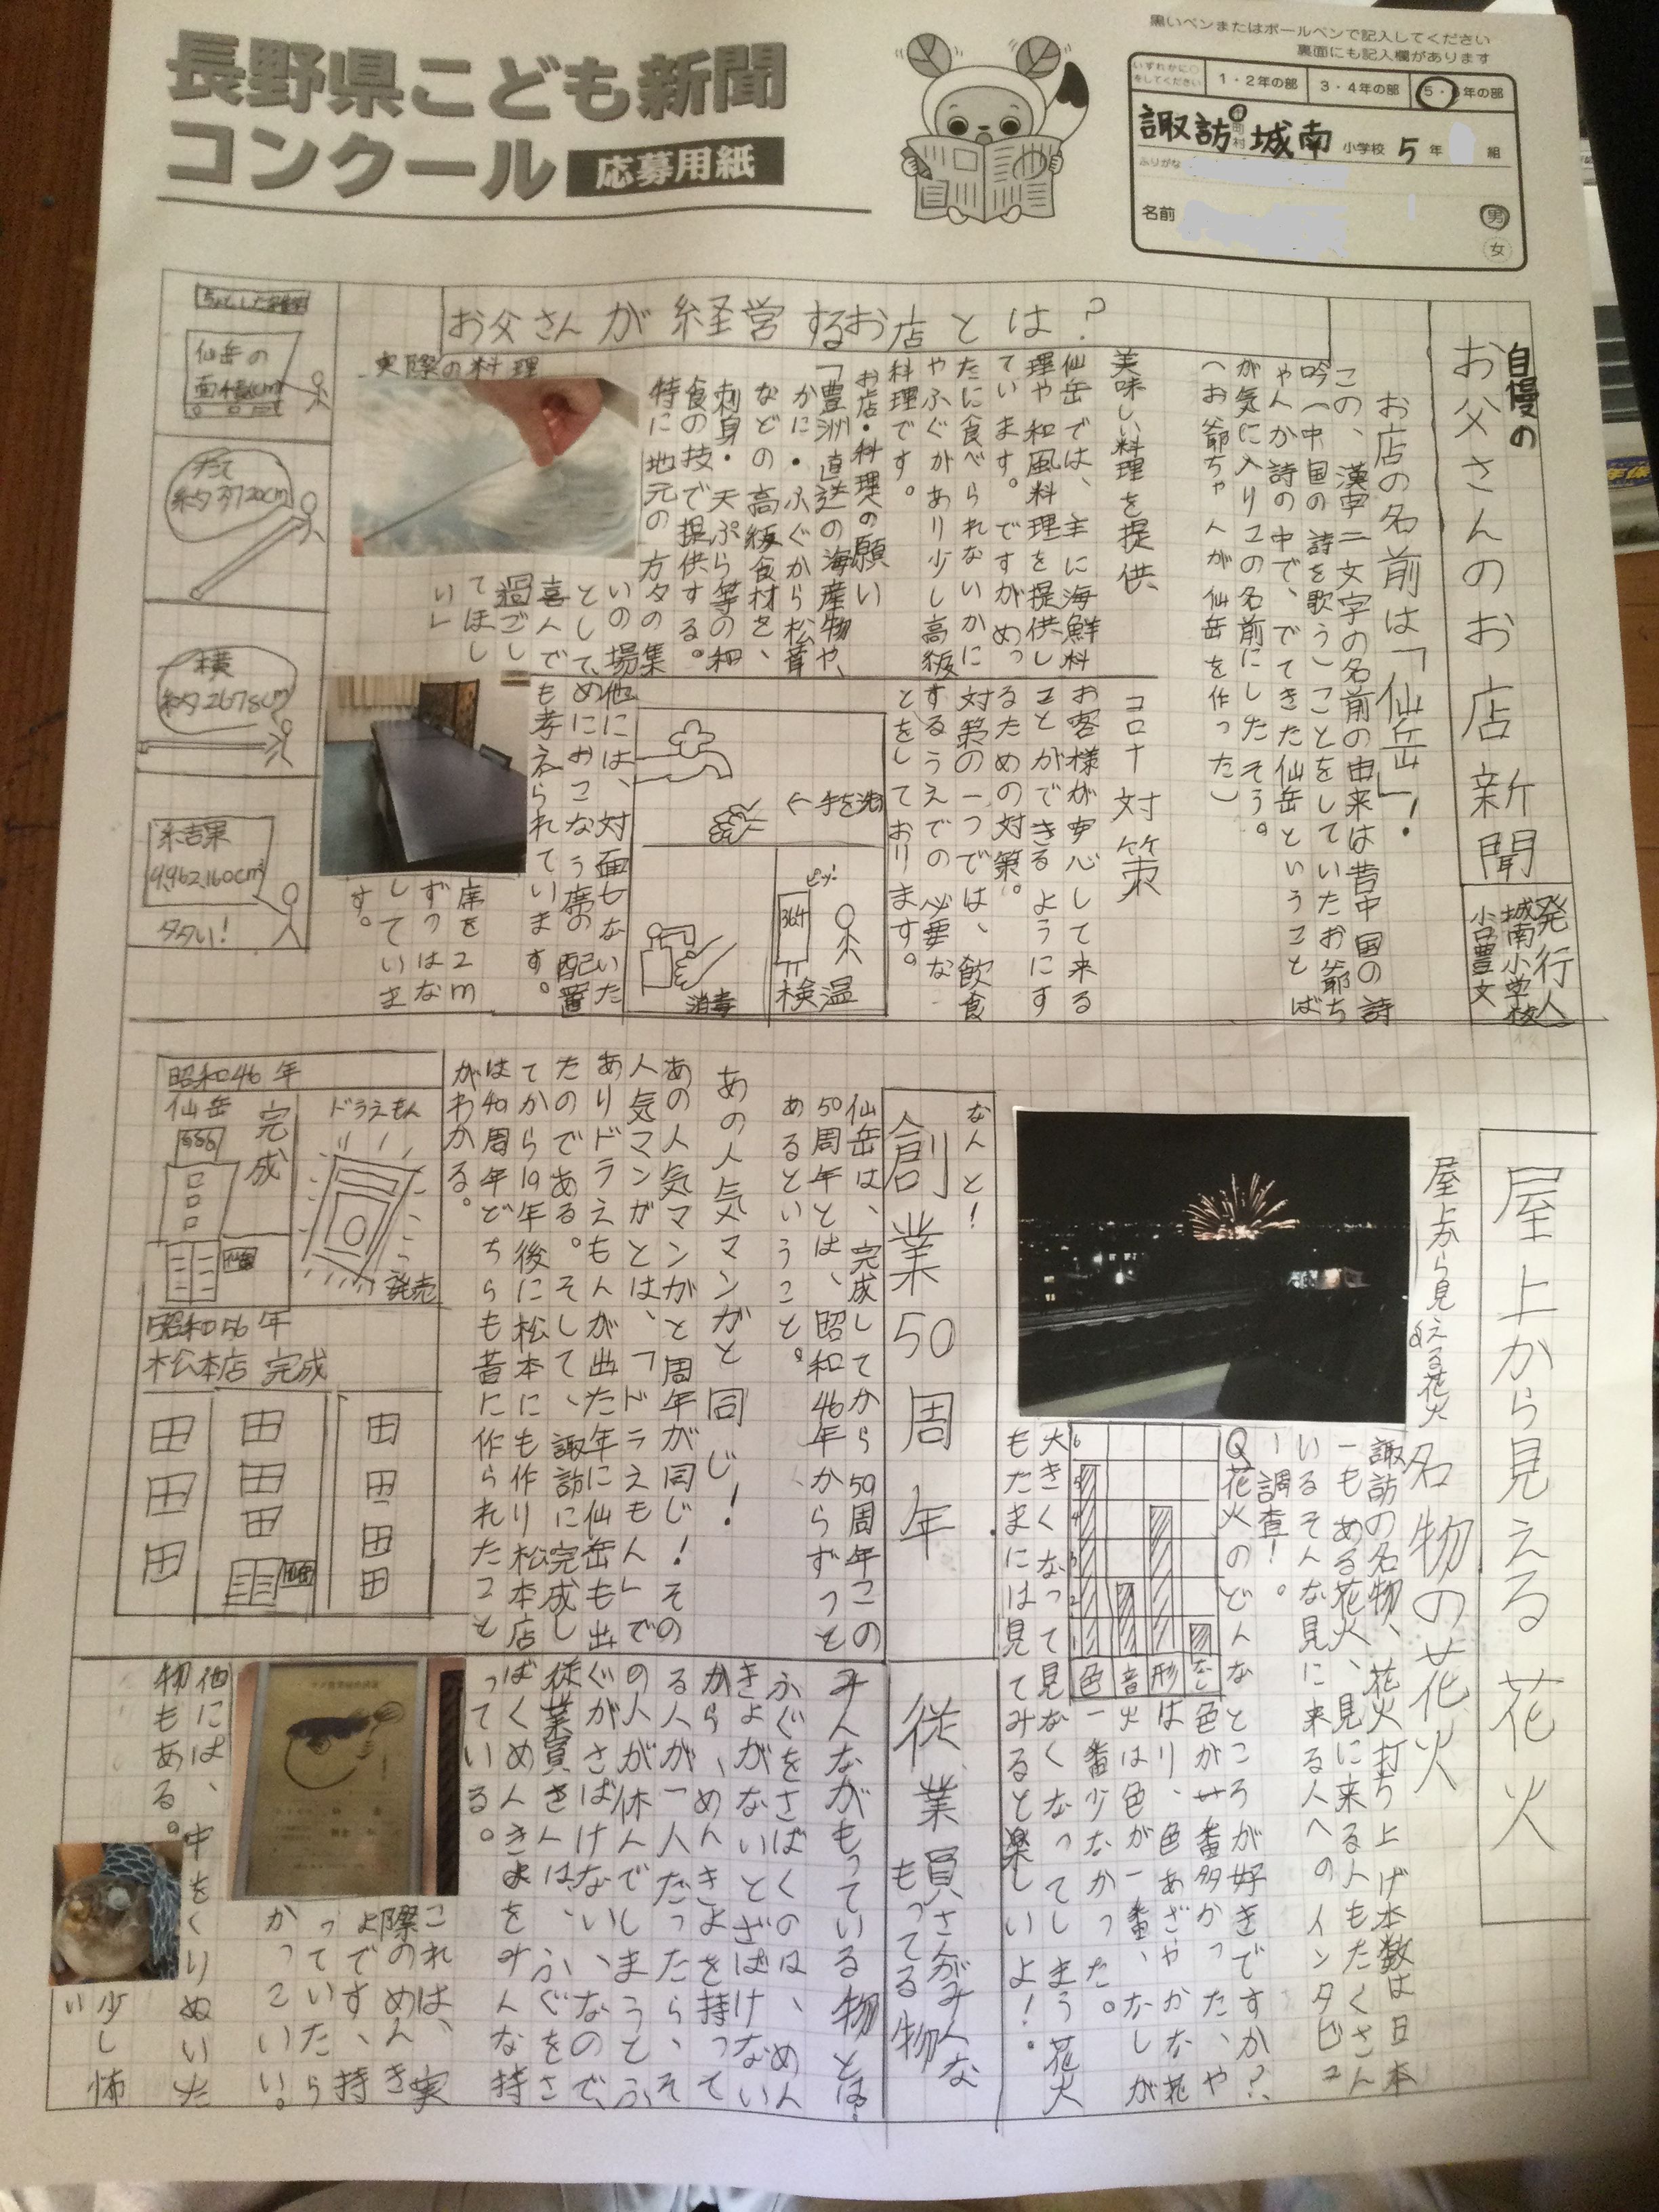 長野県こども新聞
コンクール 応募用紙
黒いペンまたはボールペンで記入してください
裏面にも記入欄があります
いずれかに○
をしてください
1・2年の部
3・4年の部
5・ 年の部
諏訪 市 町 村 城南 小学校 5 年 組
ふりがな
名前
男
女
自慢の
お父さんのお店新聞
発行人
城南小学校
小口豊文
お店の名前は「仙岳」!
この、漢字二文字の名前の由来は昔中国の詩
吟(中国の詩を歌う)ことをしていたお爺ち
ゃんが詩の中で、でてきた仙岳ということば
が気に入りコの名前にしたそう。
(お爺ちゃんが仙岳を作った)
お父さんが経営するお店とは?
美味しい料理を提供
仙岳では、主に海鮮料
理や和風料理を提供し
ています。ですがめっ
たに食べられないかに
やふぐがあり少し高級
料理です。
お店・料理への願い
「豊洲直送の海産物や、
かに・ふぐから松茸
などの高級食材を、
刺身・天ぷら等の和
食の技で提供する。
特に地元の方々の集
いの場
として、
喜んで
過ごし
てほし
い」
実際の料理
コロナ対策
お客様が安心して来る
ことができるようにす
るための対策。
対策の一つでは、飲食
するうえでの必要なこ
とをしております。
←手を洗う
ピッ!
364
検温
消毒
他には、対面しないた
めにおこなう席の配置
も考えられています。
席を2m
ずつはな
していま
す。
ちょっとした
仙岳の
面積(cm)
たて
約3720cm
横
約2678cm
結果
9,962,160cm²
タタい!
屋上から見える花火
屋上から見える花火
名物の花火
諏訪の名物、花火打ち上げ本数は日本
一もある花火、見に来る人もたくさん
いるそんな見に来る人へのインタビュ
ー調査!。
Q花火のどんなところが好きですか?
色が一番多かった、や
はり、色あざやかな花
火は色が一番、なしが
一番少なかった。
6
5
4
3
2
1
色
音
形
なし
大きくなって見なくなってしまう花火
もたまには見てみると楽しいよ!。
なんと!
創業50周年
仙岳は、完成してから50周年この
50周年とは、昭和46年からずっと
あるということ。
あの人気マンガと同じ!
あの人気マンガと周年が同じ!その
人気マンガとは、「ドラえもん」で
ありドラえもんが出た年に仙岳も出
たのである。そして、諏訪に完成し
てから10年後に松本にも作り松本店
は40周年どちらも昔に作られたこと
がわかる。
昭和46年
仙岳
完成
ドラえもん
発売
昭和56年
松本店 完成
従業員さんがみんな
もってる物
みんながもっている物とは?
ふぐをさばくのは、めん
きょがないとさばけない
から、めんきょを持って
る人が一人だったら、そ
の人が休んでしまうとふ
ぐがさばけない、なので、
従業員さんは、ふぐをさ
ばくめんきょをみんな持
っている。
これは、実
際のめんき
ょです、持
っていたら
かっこいい。
他には、中をくりぬいた
物もある。
少し怖
い